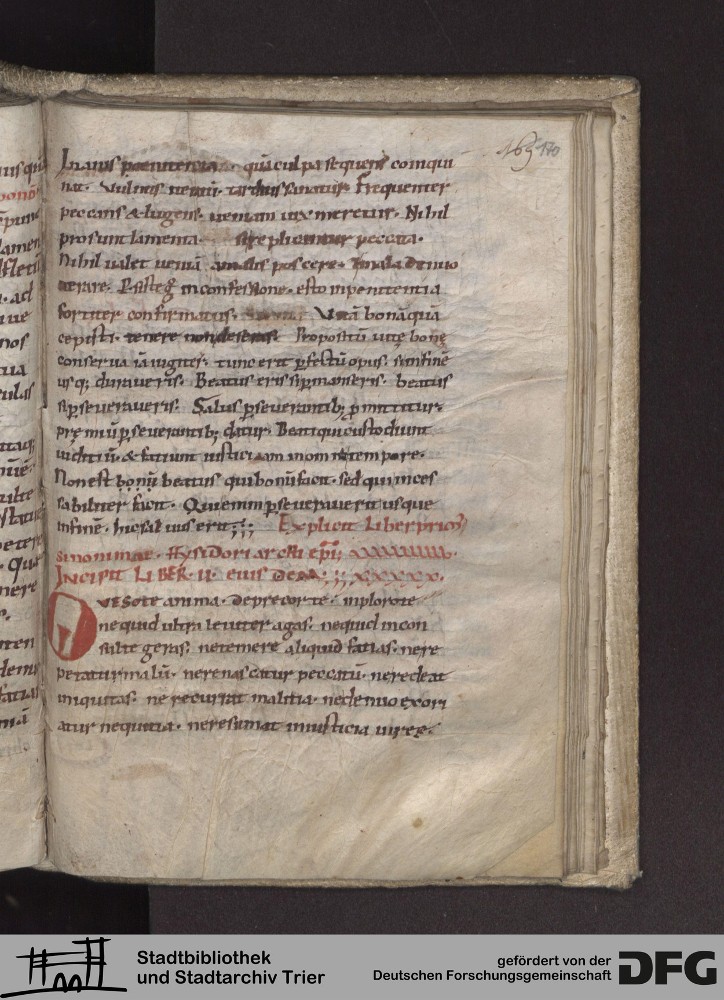 Inanis paenitentia. quā culpa sequens coinqui
nat. Vulnus iteratū. tardius sanatur. Frequenter
peccans & lugens. ueniam uix meretur. Nihil
prosunt lamenta. si replicantur peccata.
Nihil ualet ueniā a malis poscere. & mala denuo
iterare. P̄siste g̊ in confessione. esto in penitentia
fortiter confirmatus. Vitā bonā quā
cepisti. tenere non deseras. Propositū uitę bonę
conserua iā iugiter. tunc erit p̄fectū opus. si in finē
usq; duraueris. Beatus eris si p̄manseris. beatus
si p̄seueraueris. Salus p̄seuerantib; p̄mittitur.
pręmiū p̄seuerantib; datur. Beati qui custodiunt
iuditiū. & fatiunt iustitiam in omni tempore.
Non est bonū beatus qui bonū facit. sed qui inces
sabiliter facit. Qui enim p̄seuerauerit usque
in finē. hic saluus erit;;; Explicit Liber prim̄
sinonimae. Hysidori archi epi;
INCIPIT LIBER. II. eius DEM;;;
QVESO te anima. deprecor te. inploro te
ne quid ultra leuiter agas. ne quid incon
sulte geras. ne temere aliquid fatias. ne re
petatur malū. ne renascatur peccatū. ne redeat
iniquitas. ne recurrat malitia. ne denuo exori
atur nequitia. ne resumat iniusticia uires.
165 170
Stadtbibliothek
und Stadtarchiv Trier
gefördert von der
Deutschen Forschungsgemeinschaft
DFG